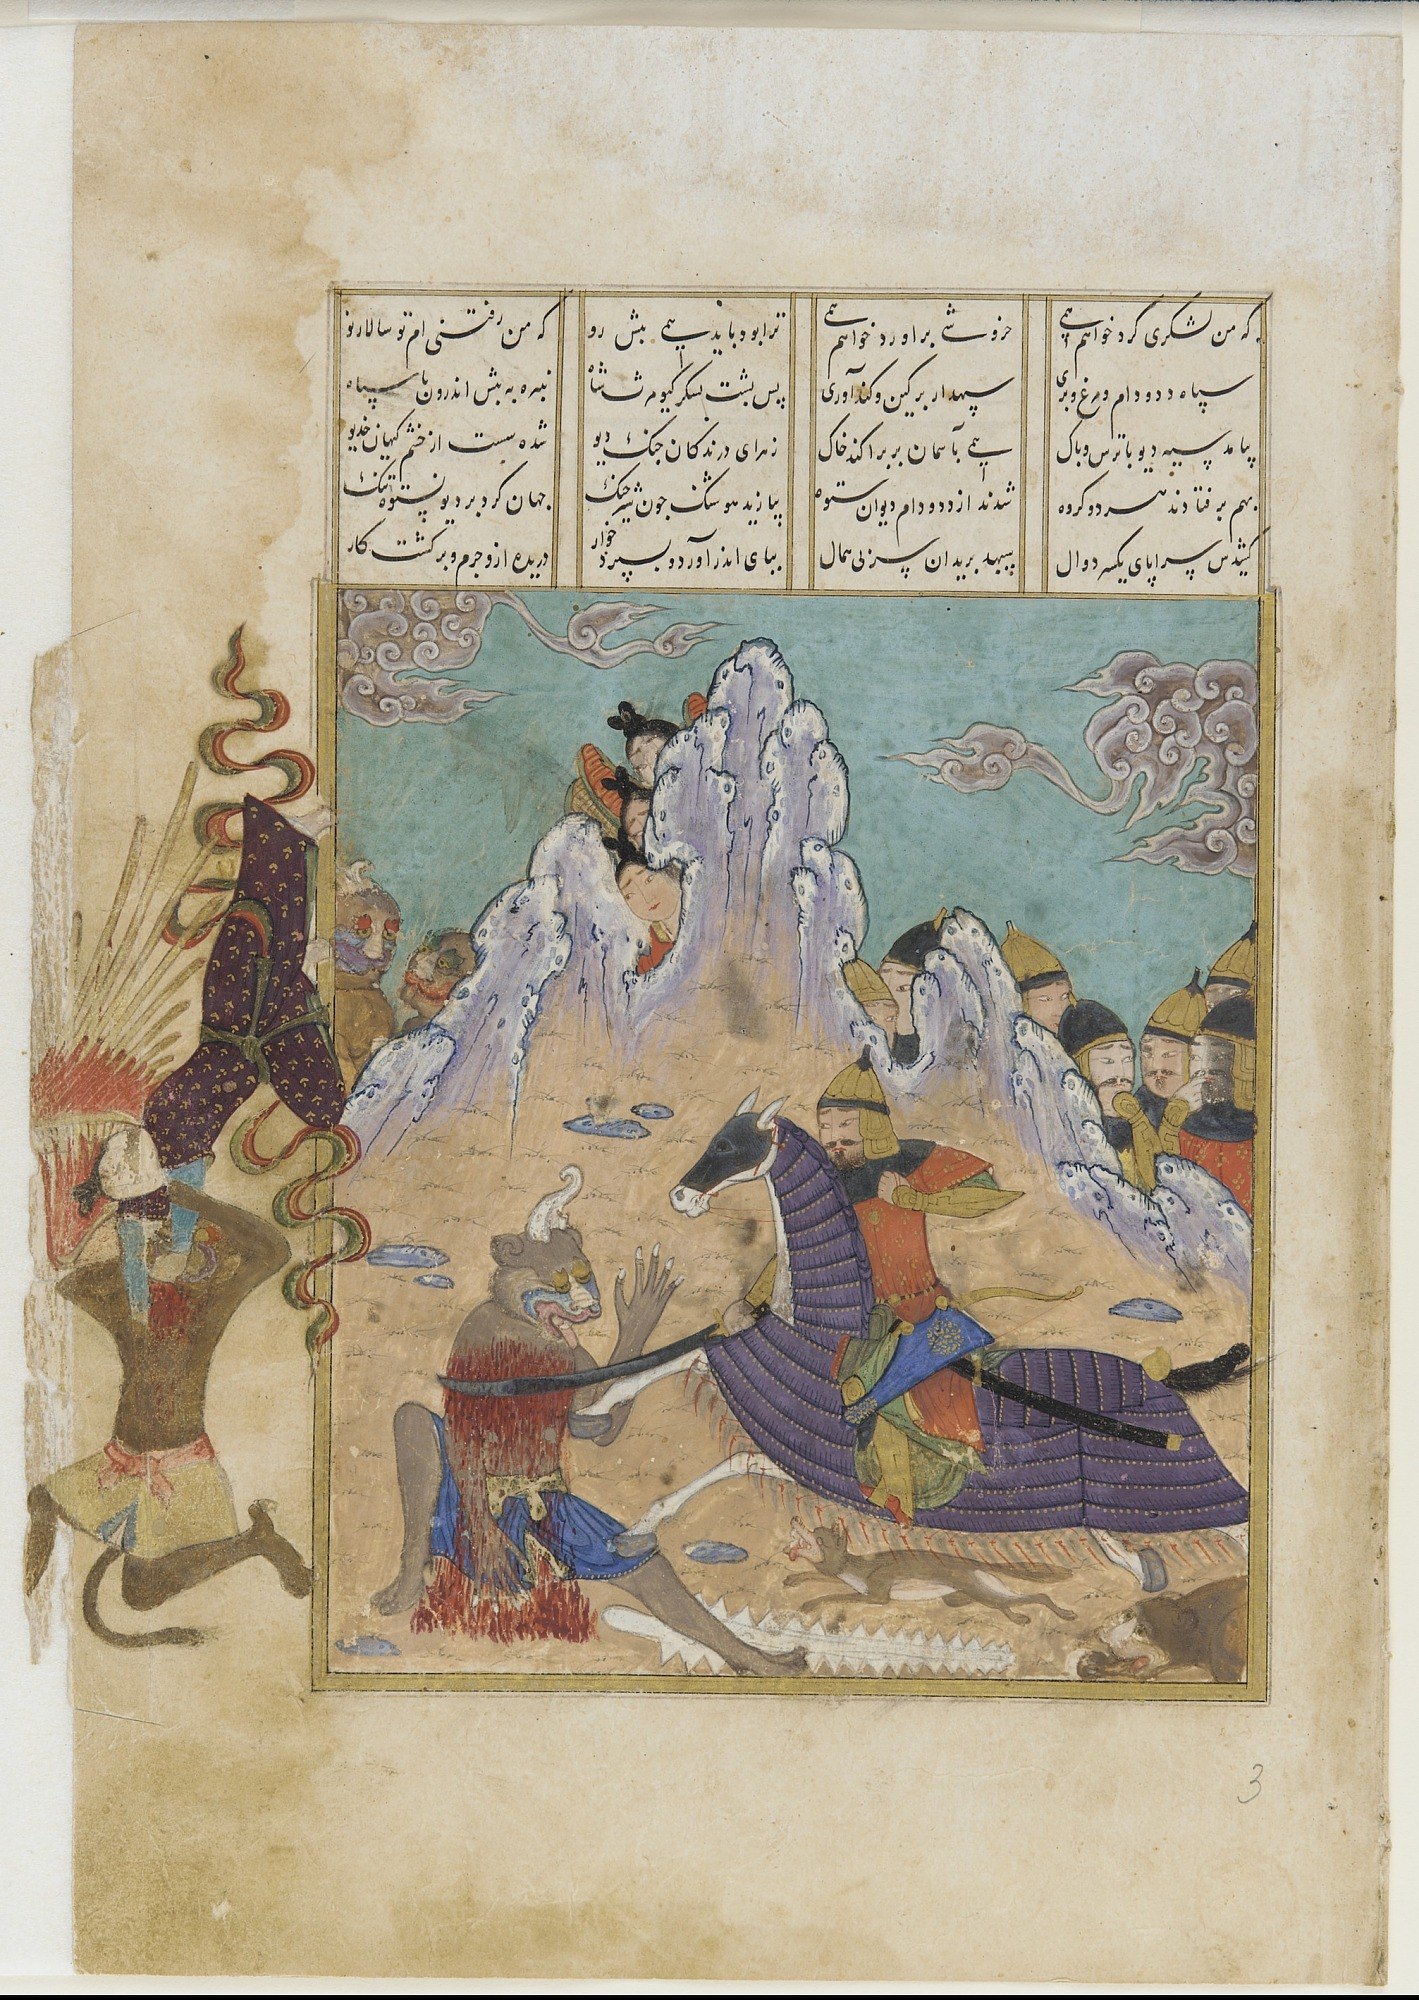 که من لشکری کرد خواهم همی خروشی براورد خواهم همی ترا بود باید همی پیش رو که من رفتنی ام تو سالار نو
سپاه دد و دام و مرغ و پری سپهدار پرکین و کندآوری پس پشت لشکر کیومرث شاه نبیره به پیش اندرون با سپاه
بیامد سیه دیو با ترس و باک همی بآسمان بر پراکند خاک ز هرای درندگان چنگ دیو شده سست از خشم کیهان خدیو
بهم برفتادند هر دو گروه شدند از دد و دام دیوان ستوه بیازید هوشنگ چون شیر چنگ جهان کرد بر دیو نستوه تنگ
کشیدش سراپای یکسر دوال سپهبد برید آن سر بی همال بپای اندر آورد و بسپرد خوار دریده ازو چرم و برگشت کار
3